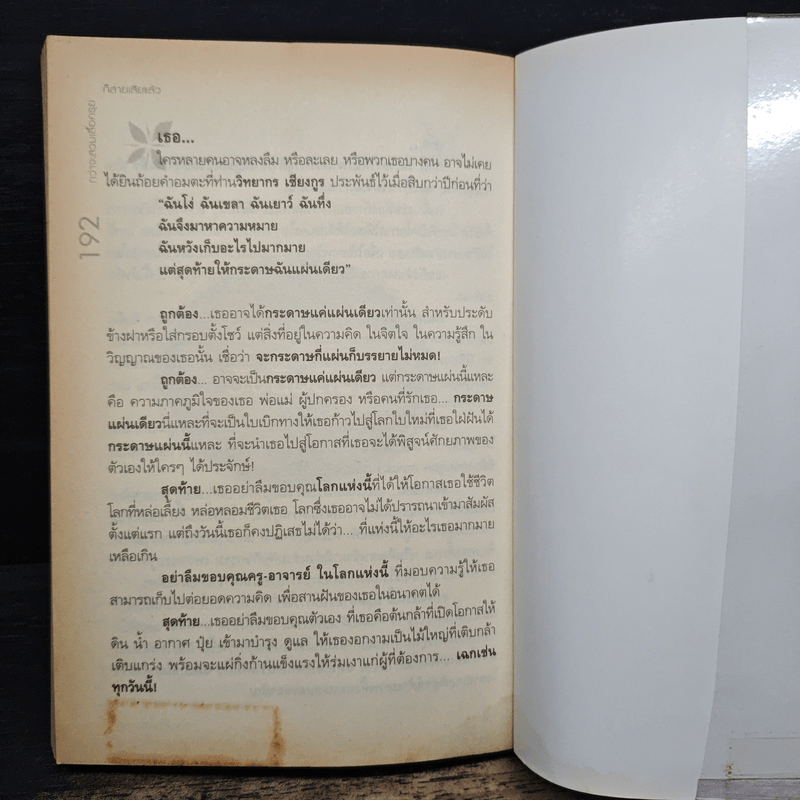 ก็สายเสียแล้ว
กว่าจะสวมเสื้อครุย
192
เธอ...
ใครหลายคนอาจหลงลืม หรือละเลย หรือพวกเธอบางคน อาจไม่เคย
ได้ยินถ้อยคำอมตะที่ท่านวิทยากร เชียงกูร ประพันธ์ไว้เมื่อสิบกว่าปีก่อนที่ว่า
"ฉันโง่ ฉันเขลา ฉันเยาว์ ฉันทึ่ง
ฉันจึงมาหาความหมาย
ฉันหวังเก็บอะไรไปมากมาย
แต่สุดท้ายให้กระดาษฉันแผ่นเดียว"
ถูกต้อง...เธออาจได้กระดาษแค่แผ่นเดียวเท่านั้น สำหรับประดับ
ข้างฝาหรือใส่กรอบตั้งโชว์ แต่สิ่งที่อยู่ในความคิด ในจิตใจ ในความรู้สึก ใน
วิญญาณของเธอนั้น เชื่อว่า จะกระดาษกี่แผ่นก็บรรยายไม่หมด!
ถูกต้อง... อาจจะเป็นกระดาษแค่แผ่นเดียว แต่กระดาษแผ่นนี้แหละ
คือ ความภาคภูมิใจของเธอ พ่อแม่ ผู้ปกครอง หรือคนที่รักเธอ... กระดาษ
แผ่นเดียวนี่แหละที่จะเป็นใบเบิกทางให้เธอก้าวไปสู่โลกใบใหม่ที่เธอใฝ่ฝันได้
กระดาษแผ่นนี้แหละ ที่จะนำเธอไปสู่โอกาสที่เธอจะได้พิสูจน์ศักยภาพของ
ตัวเองให้ใครๆ ได้ประจักษ์!
สุดท้าย...เธออย่าลืมขอบคุณโลกแห่งนี้ที่ได้ให้โอกาสเธอใช้ชีวิต
โลกที่หล่อเลี้ยง หล่อหลอมชีวิตเธอ โลกซึ่งเธออาจไม่ได้ปรารถนาเข้ามาสัมผัส
ตั้งแต่แรก แต่ถึงวันนี้เธอก็คงปฏิเสธไม่ได้ว่า... ที่แห่งนี้ให้อะไรเธอมากมาย
เหลือเกิน
อย่าลืมขอบคุณครู-อาจารย์ ในโลกแห่งนี้ ที่มอบความรู้ให้เธอ
สามารถเก็บไปต่อยอดความคิด เพื่อสานฝันของเธอในอนาคตได้
สุดท้าย...เธออย่าลืมขอบคุณตัวเอง ที่เธอคือต้นกล้าที่เปิดโอกาสให้
ดิน น้ำ อากาศ ปุ๋ย เข้ามาบำรุง ดูแล ให้เธองอกงามเป็นไม้ใหญ่ที่เติบกล้า
เติบแกร่ง พร้อมจะแผ่กิ่งก้านแข็งแรงให้ร่มเงาแก่ผู้ที่ต้องการ... เฉกเช่น
ทุกวันนี้!